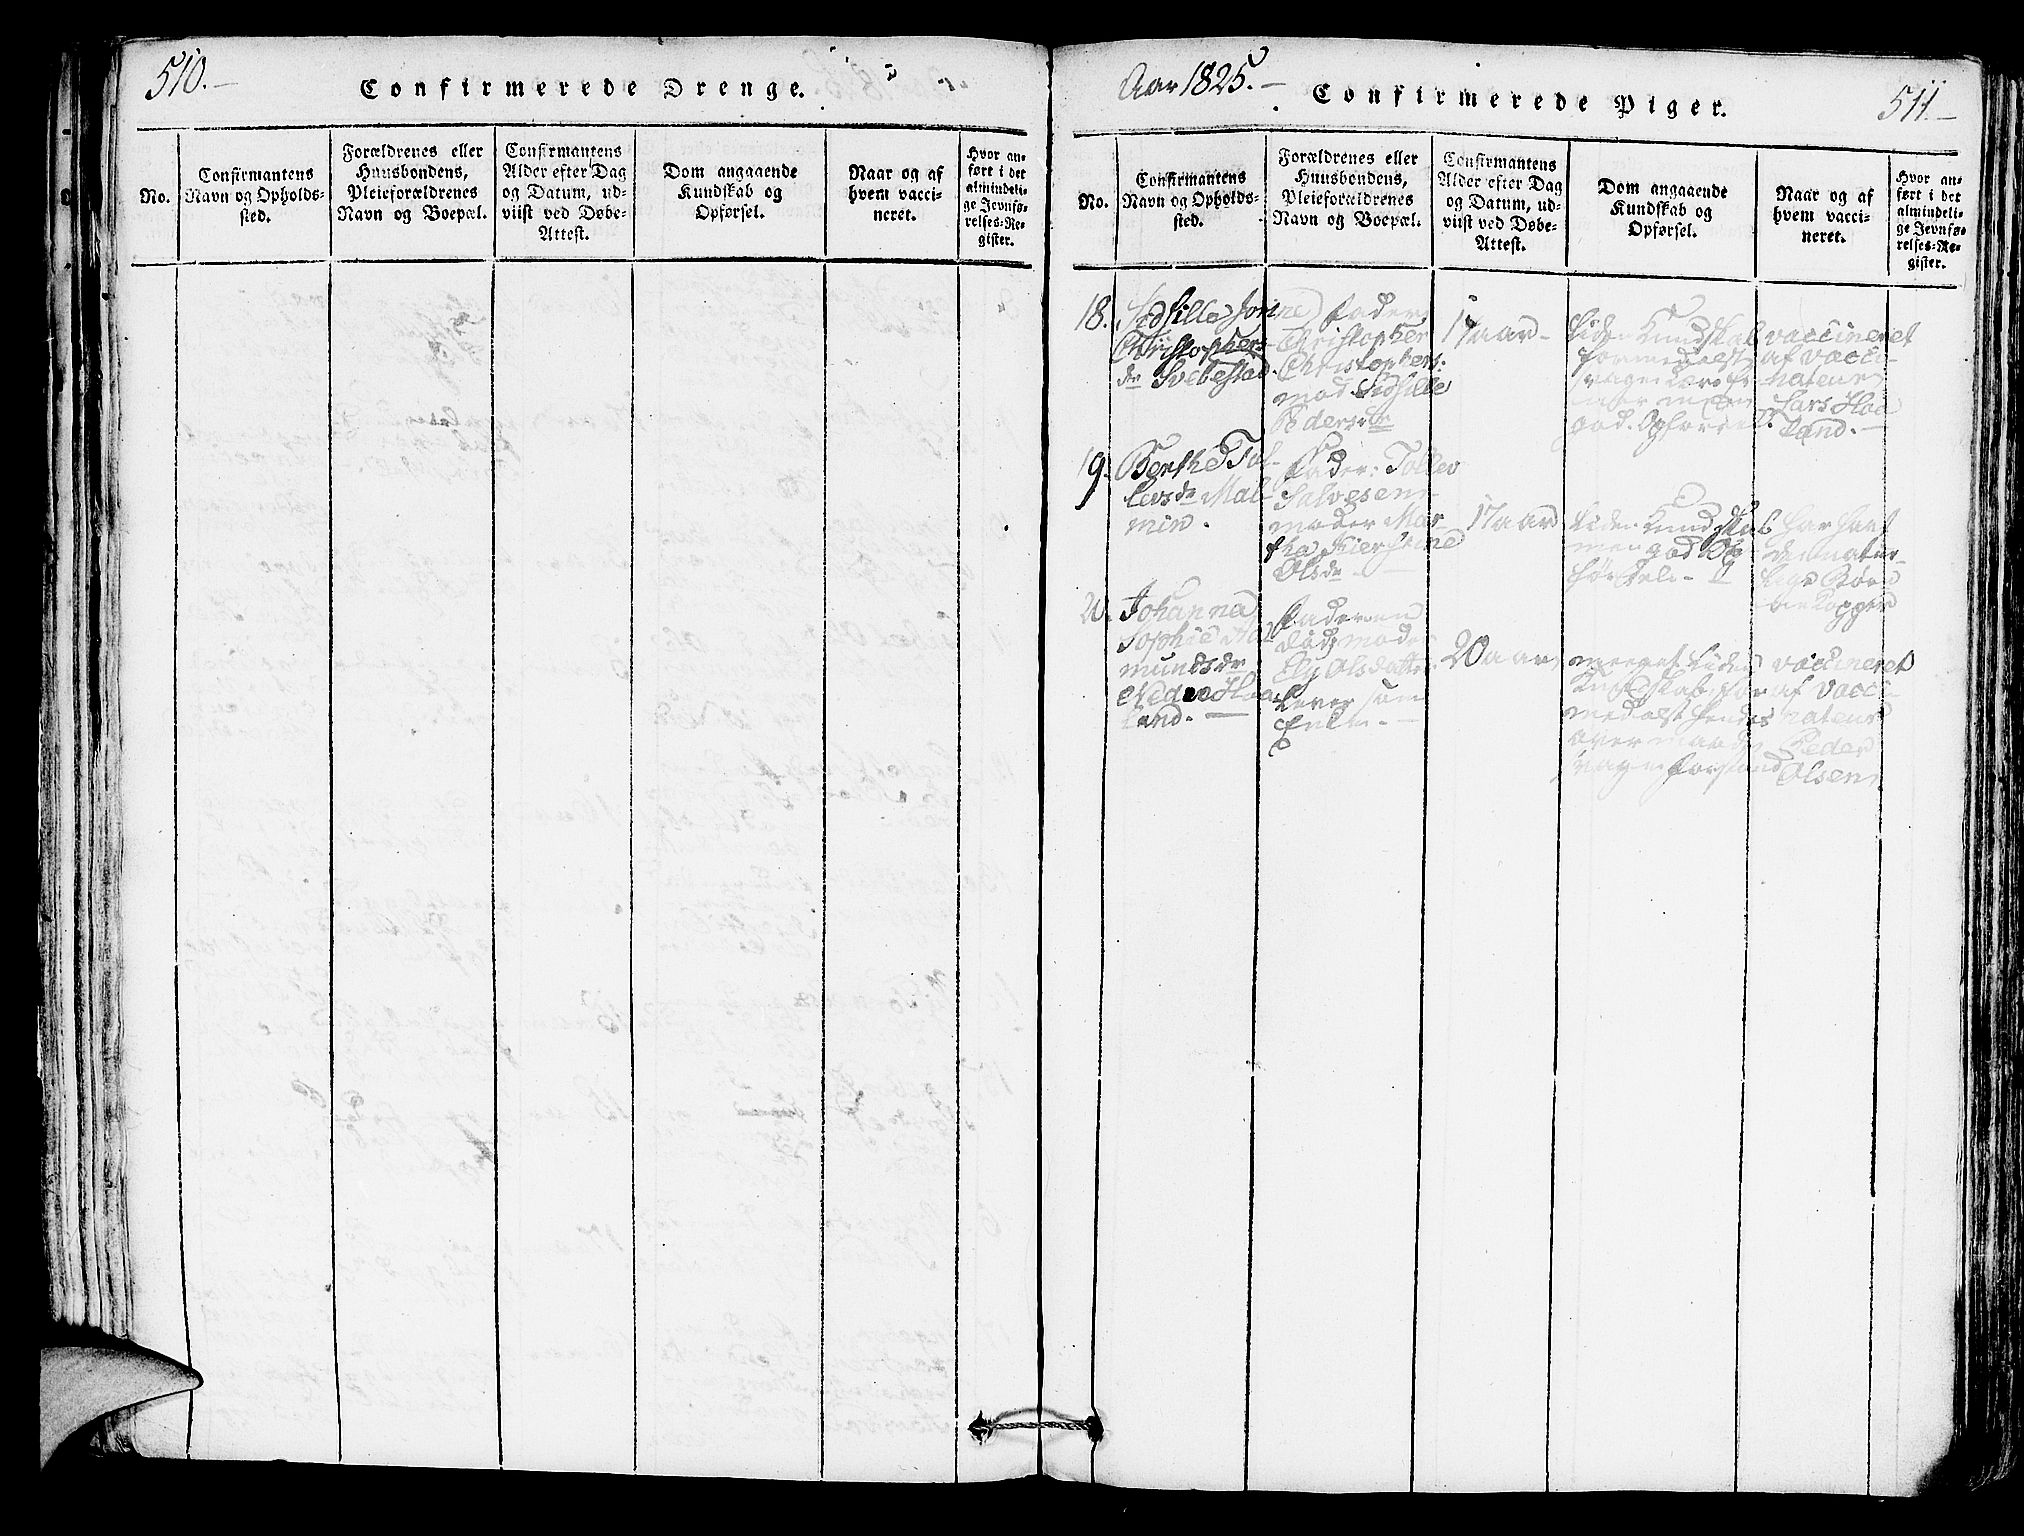 510.-
Confirmerede Drenge.
No.
Confirmantens
Navn og Opholds-
sted.
Forældrenes eller
Huusbondens,
Pleieforældrenes
Navn og Boepæl.
Confirmantens
Alder efter Dag
og Datum, ud-
viist ved Døbe-
Attest.
Dom angaaende
Kundskab og
Opførsel.
Naar og af
hvem vacci-
neret.
Hvor an-
ført i det
almindeli-
ge Jevnfø-
relses-Re-
gister.
Aar 1825.-
Confirmerede Piger.
511-
No.
Confirmantens
Navn og Opholds-
sted.
Forældrenes eller
Huusbondens,
Pleieforældrenes
Navn og Boepæl.
Confirmantens
Alder efter Dag
og Datum, ud-
viist ved Døbe-
Attest.
Dom angaaende
Kundskab og
Opførsel.
Naar og af
hvem vacci-
neret.
Hvor an-
ført i det
almindeli-
ge Jevnfø-
relses-Re-
gister.
18.
Sidsille Jorine
Christophers
dr Svebestad.
Fader
Christopher
Christophers:
mod. Sidsille
Pedersdr
17 aar-
liden Kundskab
formedelst
svage
men
god Opførsel.
vaccineret
af vacci
nateur
Lars Hoe
land.-
19.
Berthe Tol-
levsdr Mal-
min.
Fader: Tollev
Salvesen
moder Mar
tha Kierstine
Olsdr-
17 aar
liden Kundskab
men god Op
førsel-
har havt
de natur-
lige Børne
kopper
20.
Johanna
Sophie
mundsdr
Nedre Hoe
land.-
Faderen
død, moder
Olsdatter
lever som
Enke.-
20 aar
meget liden
Kundskab for
medelst hendes
over maade
svage Forstand
vaccineret
af vacci
nateur
Peder
Olsen.